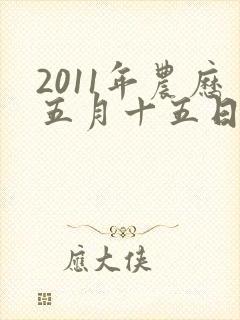 2011年農曆
五月十五日
應大俠